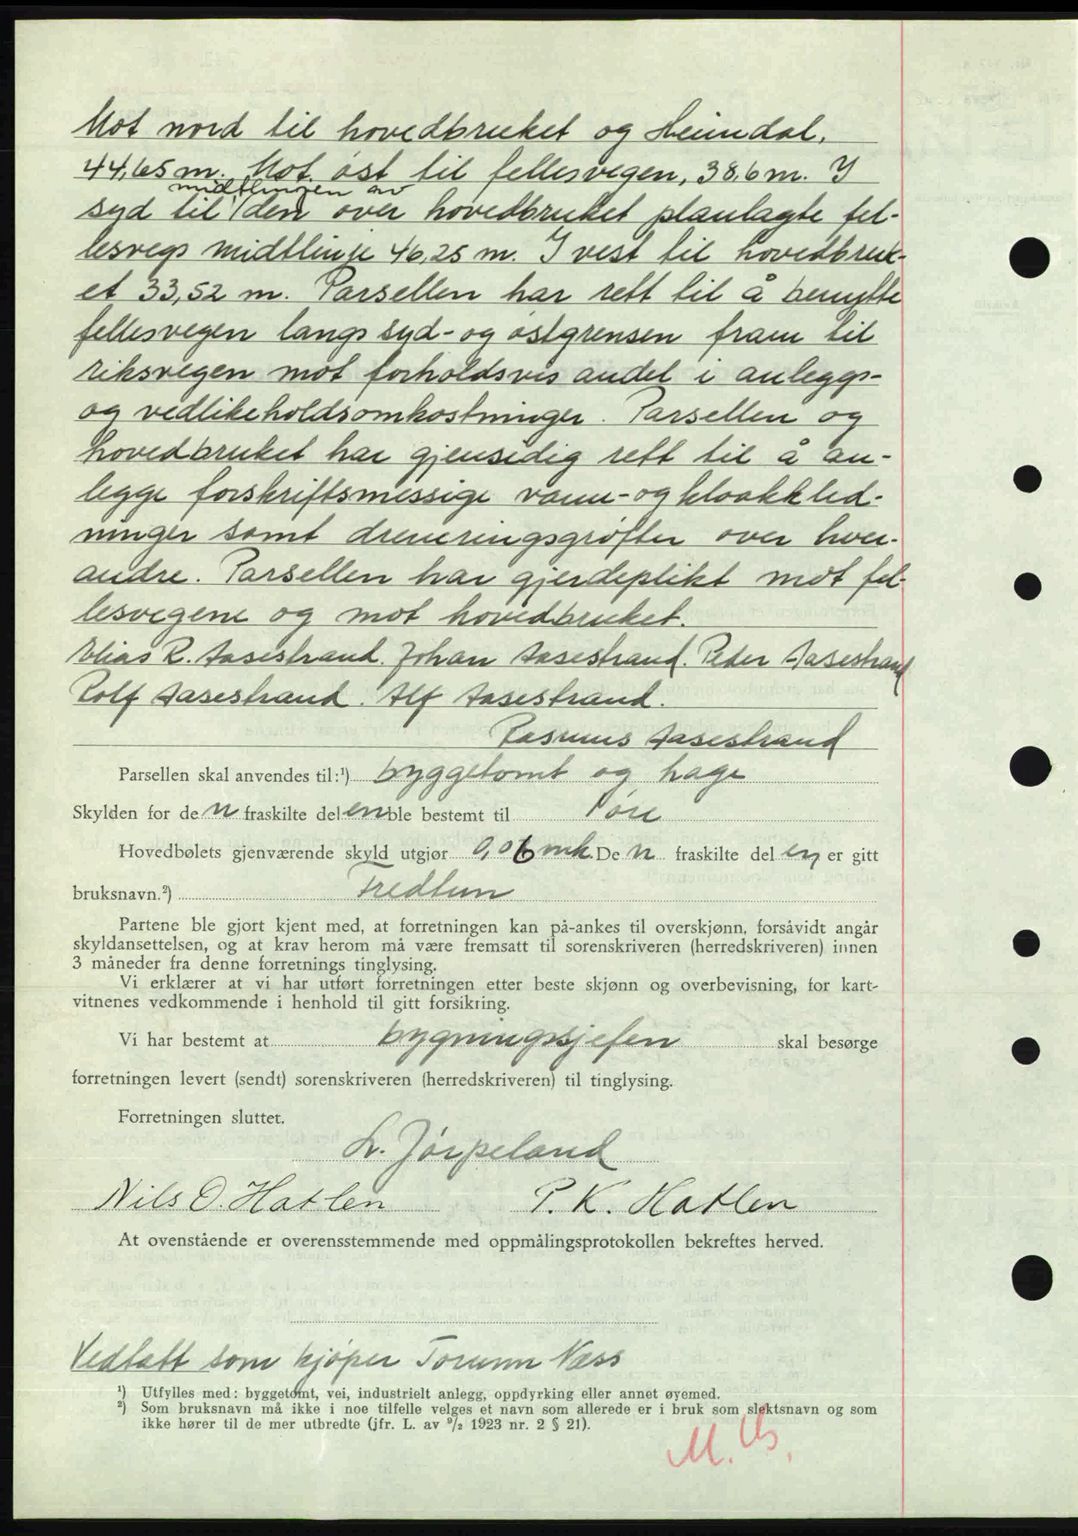 Mot nord til hovedbruket og Heimdal,
44,65 m. Mot øst til fellesvegen, 38,6 m. I
midtlinjen av
syd til den over hovedbruket planlagte fel-
lesvegs midtlinje 46,25 m. I vest til hovedbruk-
et 33,52 m. Parsellen har rett til å benytte
fellesvegen langs syd- og østgrensen fram til
riksvegen mot forholdsvis andel i anleggs-
og vedlikeholdsomkostninger. Parsellen og
hovedbruket har gjensidig rett til å an-
legge forskriftsmessige vann- og kloakkled-
ninger samt dreneringsgrøfter over hver-
andre. Parsellen har gjerdeplikt mot fel-
lesvegene og mot hovedbruket.
Elias R. Aasestrand. Johan Aasestrand. Peder Aasestrand
Rolf Aasestrand. Alf Aasestrand.
Rasmus Aasestrand
Parsellen skal anvendes til:¹) byggetomt og hage
Skylden for den fraskilte delen ble bestemt til 1 øre
Hovedbølets gjenværende skyld utgjør 0,06 mk. Den fraskilte delen er gitt
bruksnavn.²) Fredtun
Partene ble gjort kjent med, at forretningen kan på-ankes til overskjønn, forsåvidt angår
skyldansettelsen, og at krav herom må være fremsatt til sorenskriveren (herredskriveren) innen
3 måneder fra denne forretnings tinglysing.
Vi erklærer at vi har utført forretningen etter beste skjønn og overbevisning, for kart-
vitnenes vedkommende i henhold til gitt forsikring.
Vi har bestemt at bygningssjefen skal besørge
forretningen levert (sendt) sorenskriveren (herredskriveren) til tinglysing.
Forretningen sluttet.
L. Jørpeland
Nils O. Hatlen P. K. Hatlen
At ovenstående er overensstemmende med oppmålingsprotokollen bekreftes herved.
Vedtatt som kjøper Torunn Næss
¹) Utfylles med: byggetomt, vei, industrielt anlegg, oppdyrking eller annet øyemed.
²) Som bruksnavn må ikke i noe tilfelle velges et navn som allerede er i bruk som slektsnavn og som
ikke hører til de mer utbredte (jfr. L. av ⁹/₂ 1923 nr. 2 § 21).